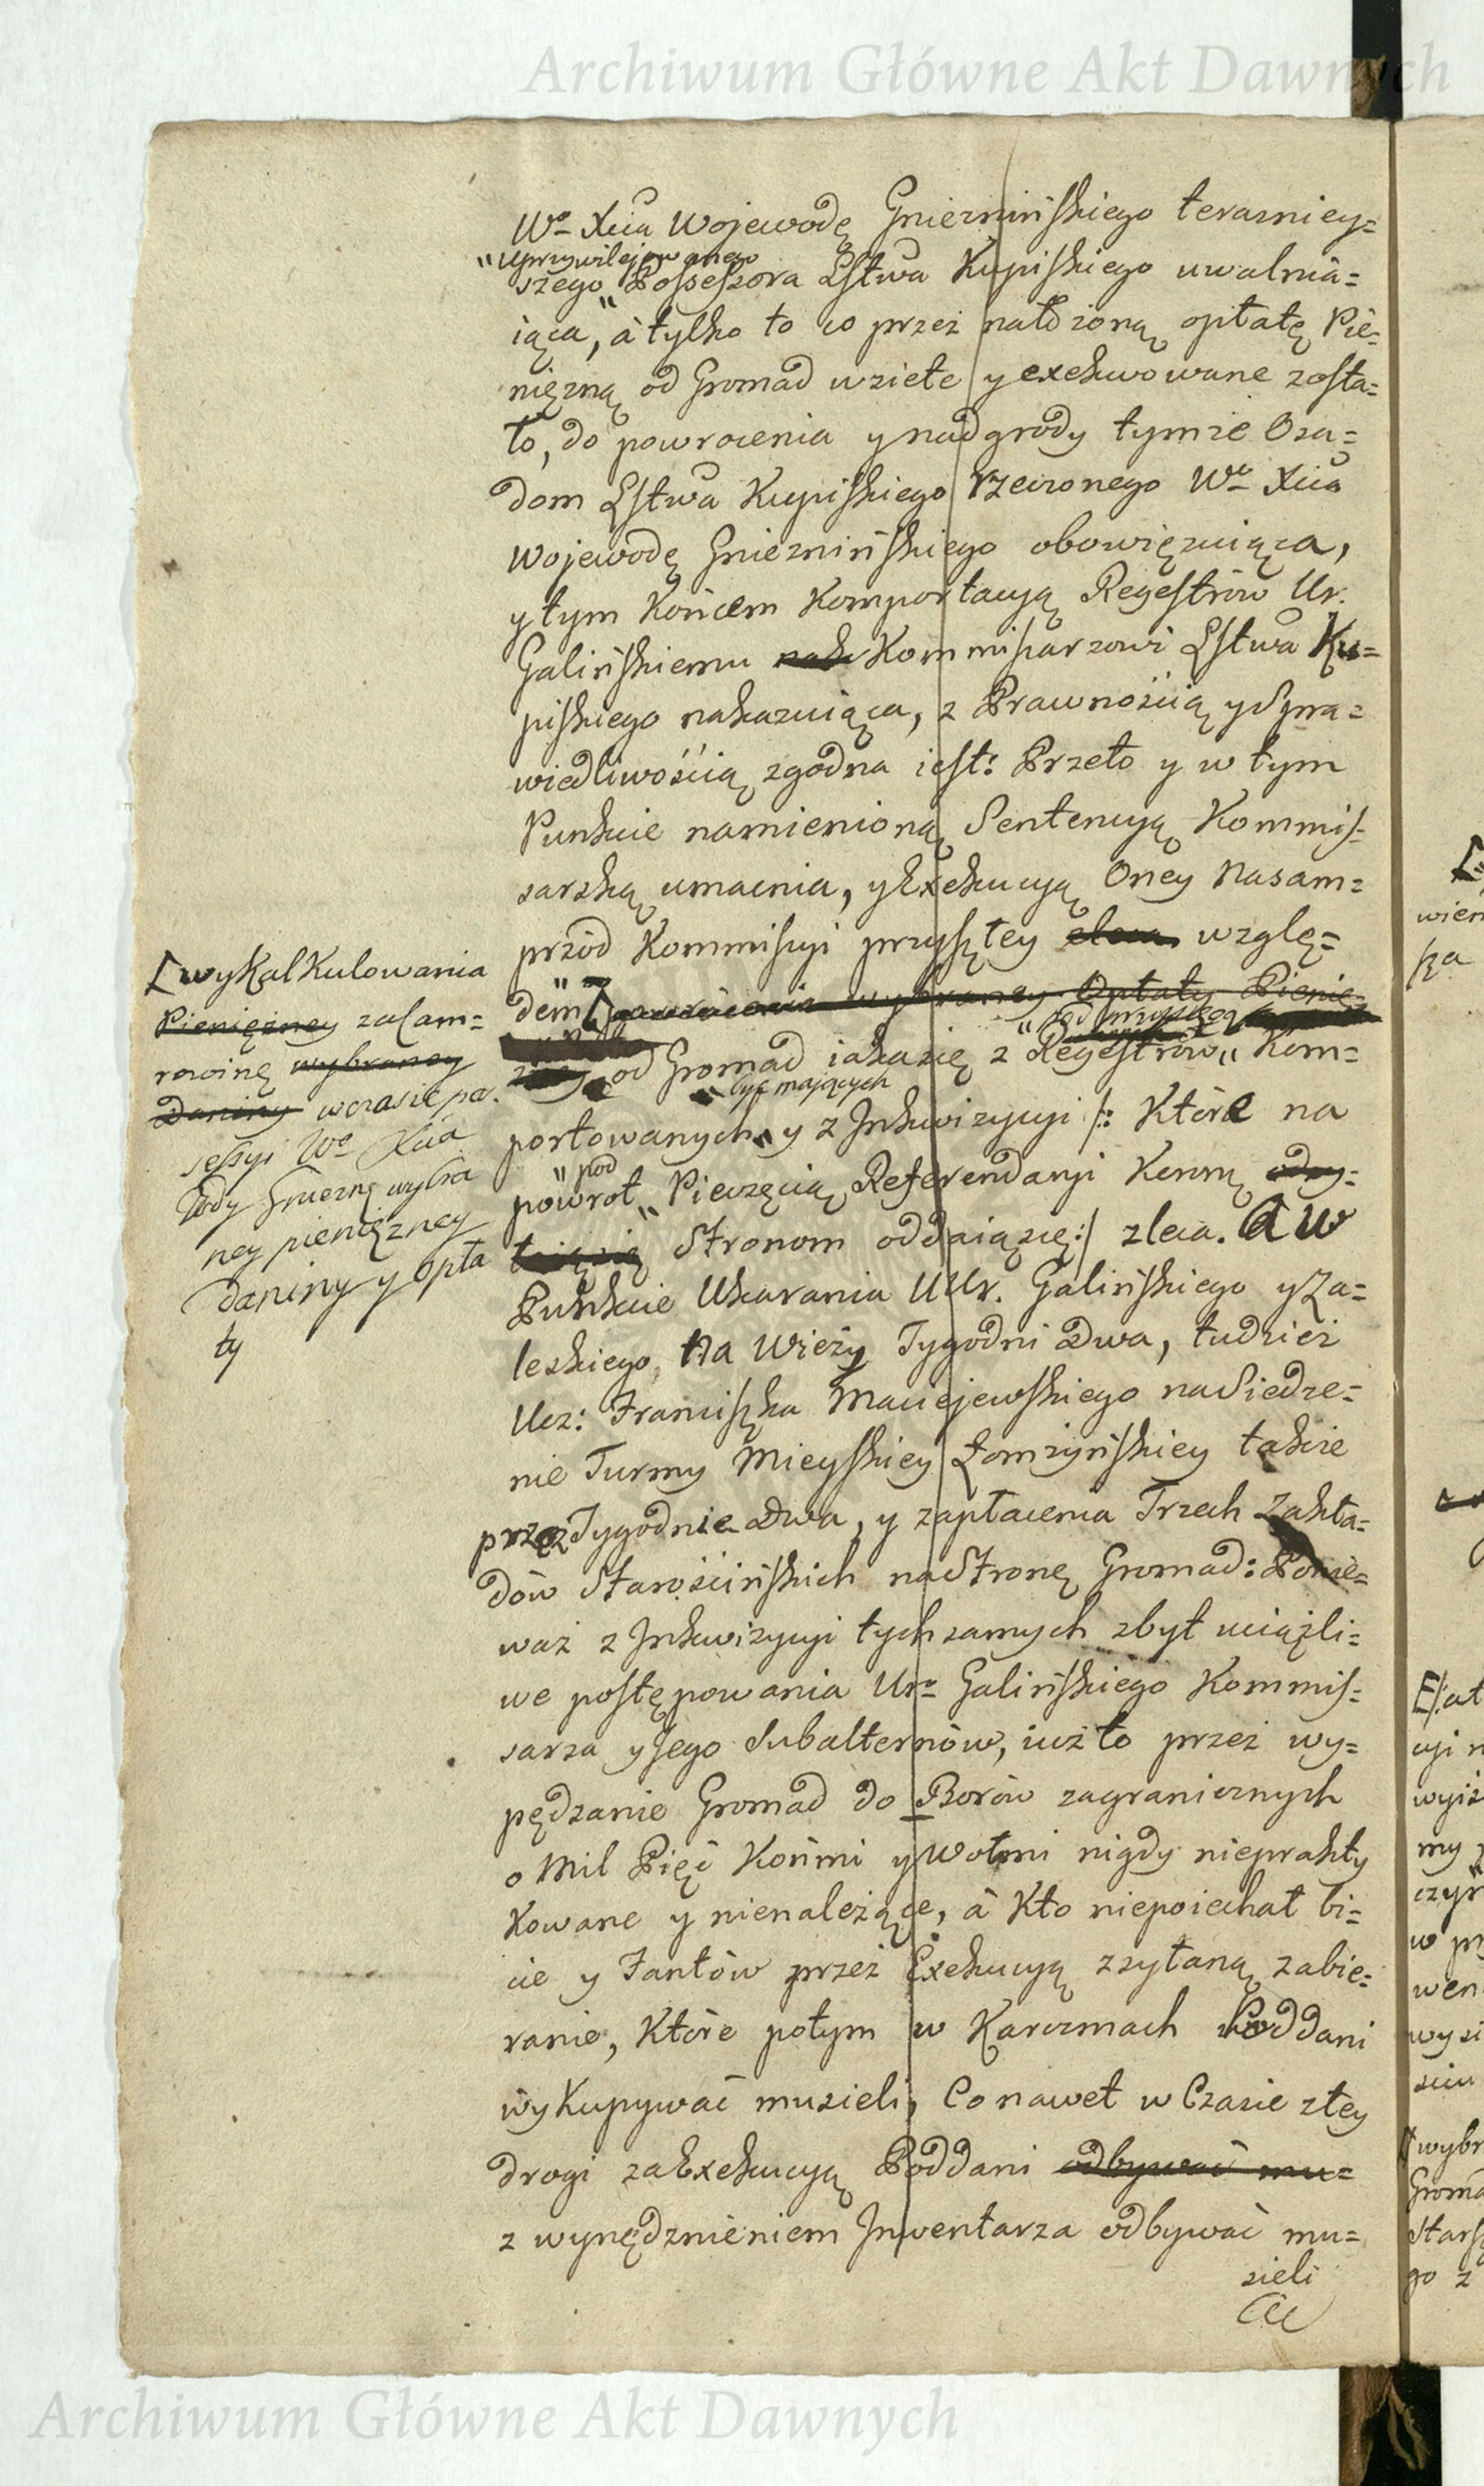 Archiwum Główne Akt Dawnych
Wo Xcia Wojewodę Gnieznińskiego terazniey=
"uprzywilejowanego
szego" Possessora Lstwa Kupiskiego uwalnia=
iąca, à tylko to co przez nałożoną opłatę Pie=
niężną od Gromad wziete y exekwowane zosta=
ło, do powrocenia y nadgrody tymże Osa=
dom Lstwa Kupiskiego rzeczonego Wo Xcia
Wojewodę Gnieznińskiego obowięzuiąca,
y tym Końcem Komportacyą Regestrów Ur.
Galińskiemu Kommissarzowi Lstwa Ku=
piskiego nakazuiąca, z Prawnością y Spra=
wiedliwością zgodna iest: Przeto y w tym
Punkcie namienioną Sentencyą Kommis=
sarską umacnia, y Exekucyą Oney Nasam=
przód Kommissyi przyszłey zleca wzglę=
dem [powrócenia wybraney Opłaty Pienię=
od Gromad iakasię z "Regestrów" Kom=
"być mających
portowanych" y z Inkwizycyi /: Które na
"pod
powrót" Pieczęcią Referendaryi Koronę odsy=
Stronom oddaiąsię:/ zleca. a w
Punkcie Ukarania UUr. Galińskiego y Za=
leskiego Na Wieży Tygodni Dwa, tudzież
Ucz: Franciszka Maciejewskiego na Siedze=
nie Turmy Mieyskiey Łomżyńskiey także
przez Tygodnie Dwa, y zapłacenia Trzech Zakła=
dów Starościńskich na Stronę Gromad: Ponie=
waż z Inkwizycyi tych samych zbyt uciążli=
we postępowania Uro Galińskiego Kommis=
sarza y Jego Subalternów, iuż to przez wy=
pędzanie Gromad do Borów zagranicznych
o Mil Pięć Końmi y Wołmi nigdy nieprakty
kowane y nienależące, à Kto niepoiechał bi=
cie y Fantów przez Exekucyą zsyłaną zabie=
ranie, Które potym w Karczmach Poddani
wykupywać musieli, Co nawet w Czasie złey
drogi za Exekucyą Poddani odbywać mu=
z wynędznieniem Inwentarza odbywać mu=
sieli
[wykalkulowania
Pieniężney zaſam=
rowinę wybraney
Daniny w czasie po.
sessyi Wo Xcia
Wdy Gniezn wybra
ney pieniężney
daniny y opła
ty
Archiwum Główne Akt Dawnych